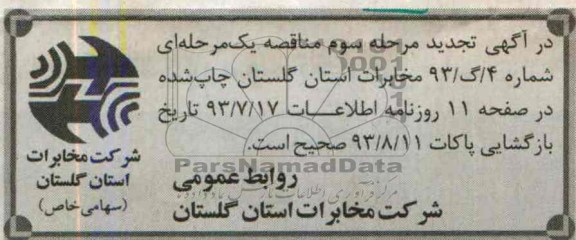 در آگهی تجدید مرحله سوم مناقصه یک‌مرحله‌ای
شماره ۴/گ/۹۳ مخابرات استان گلستان چاپ‌شده
در صفحه ۱۱ روزنامه اطلاعات ۹۳/۷/۱۷ تاریخ
بازگشایی پاکات ۹۳/۸/۱۱ صحیح است.
روابط عمومی
شرکت مخابرات استان گلستان
شرکت مخابرات
استان گلستان
(سهامی خاص)
ParsNamadData